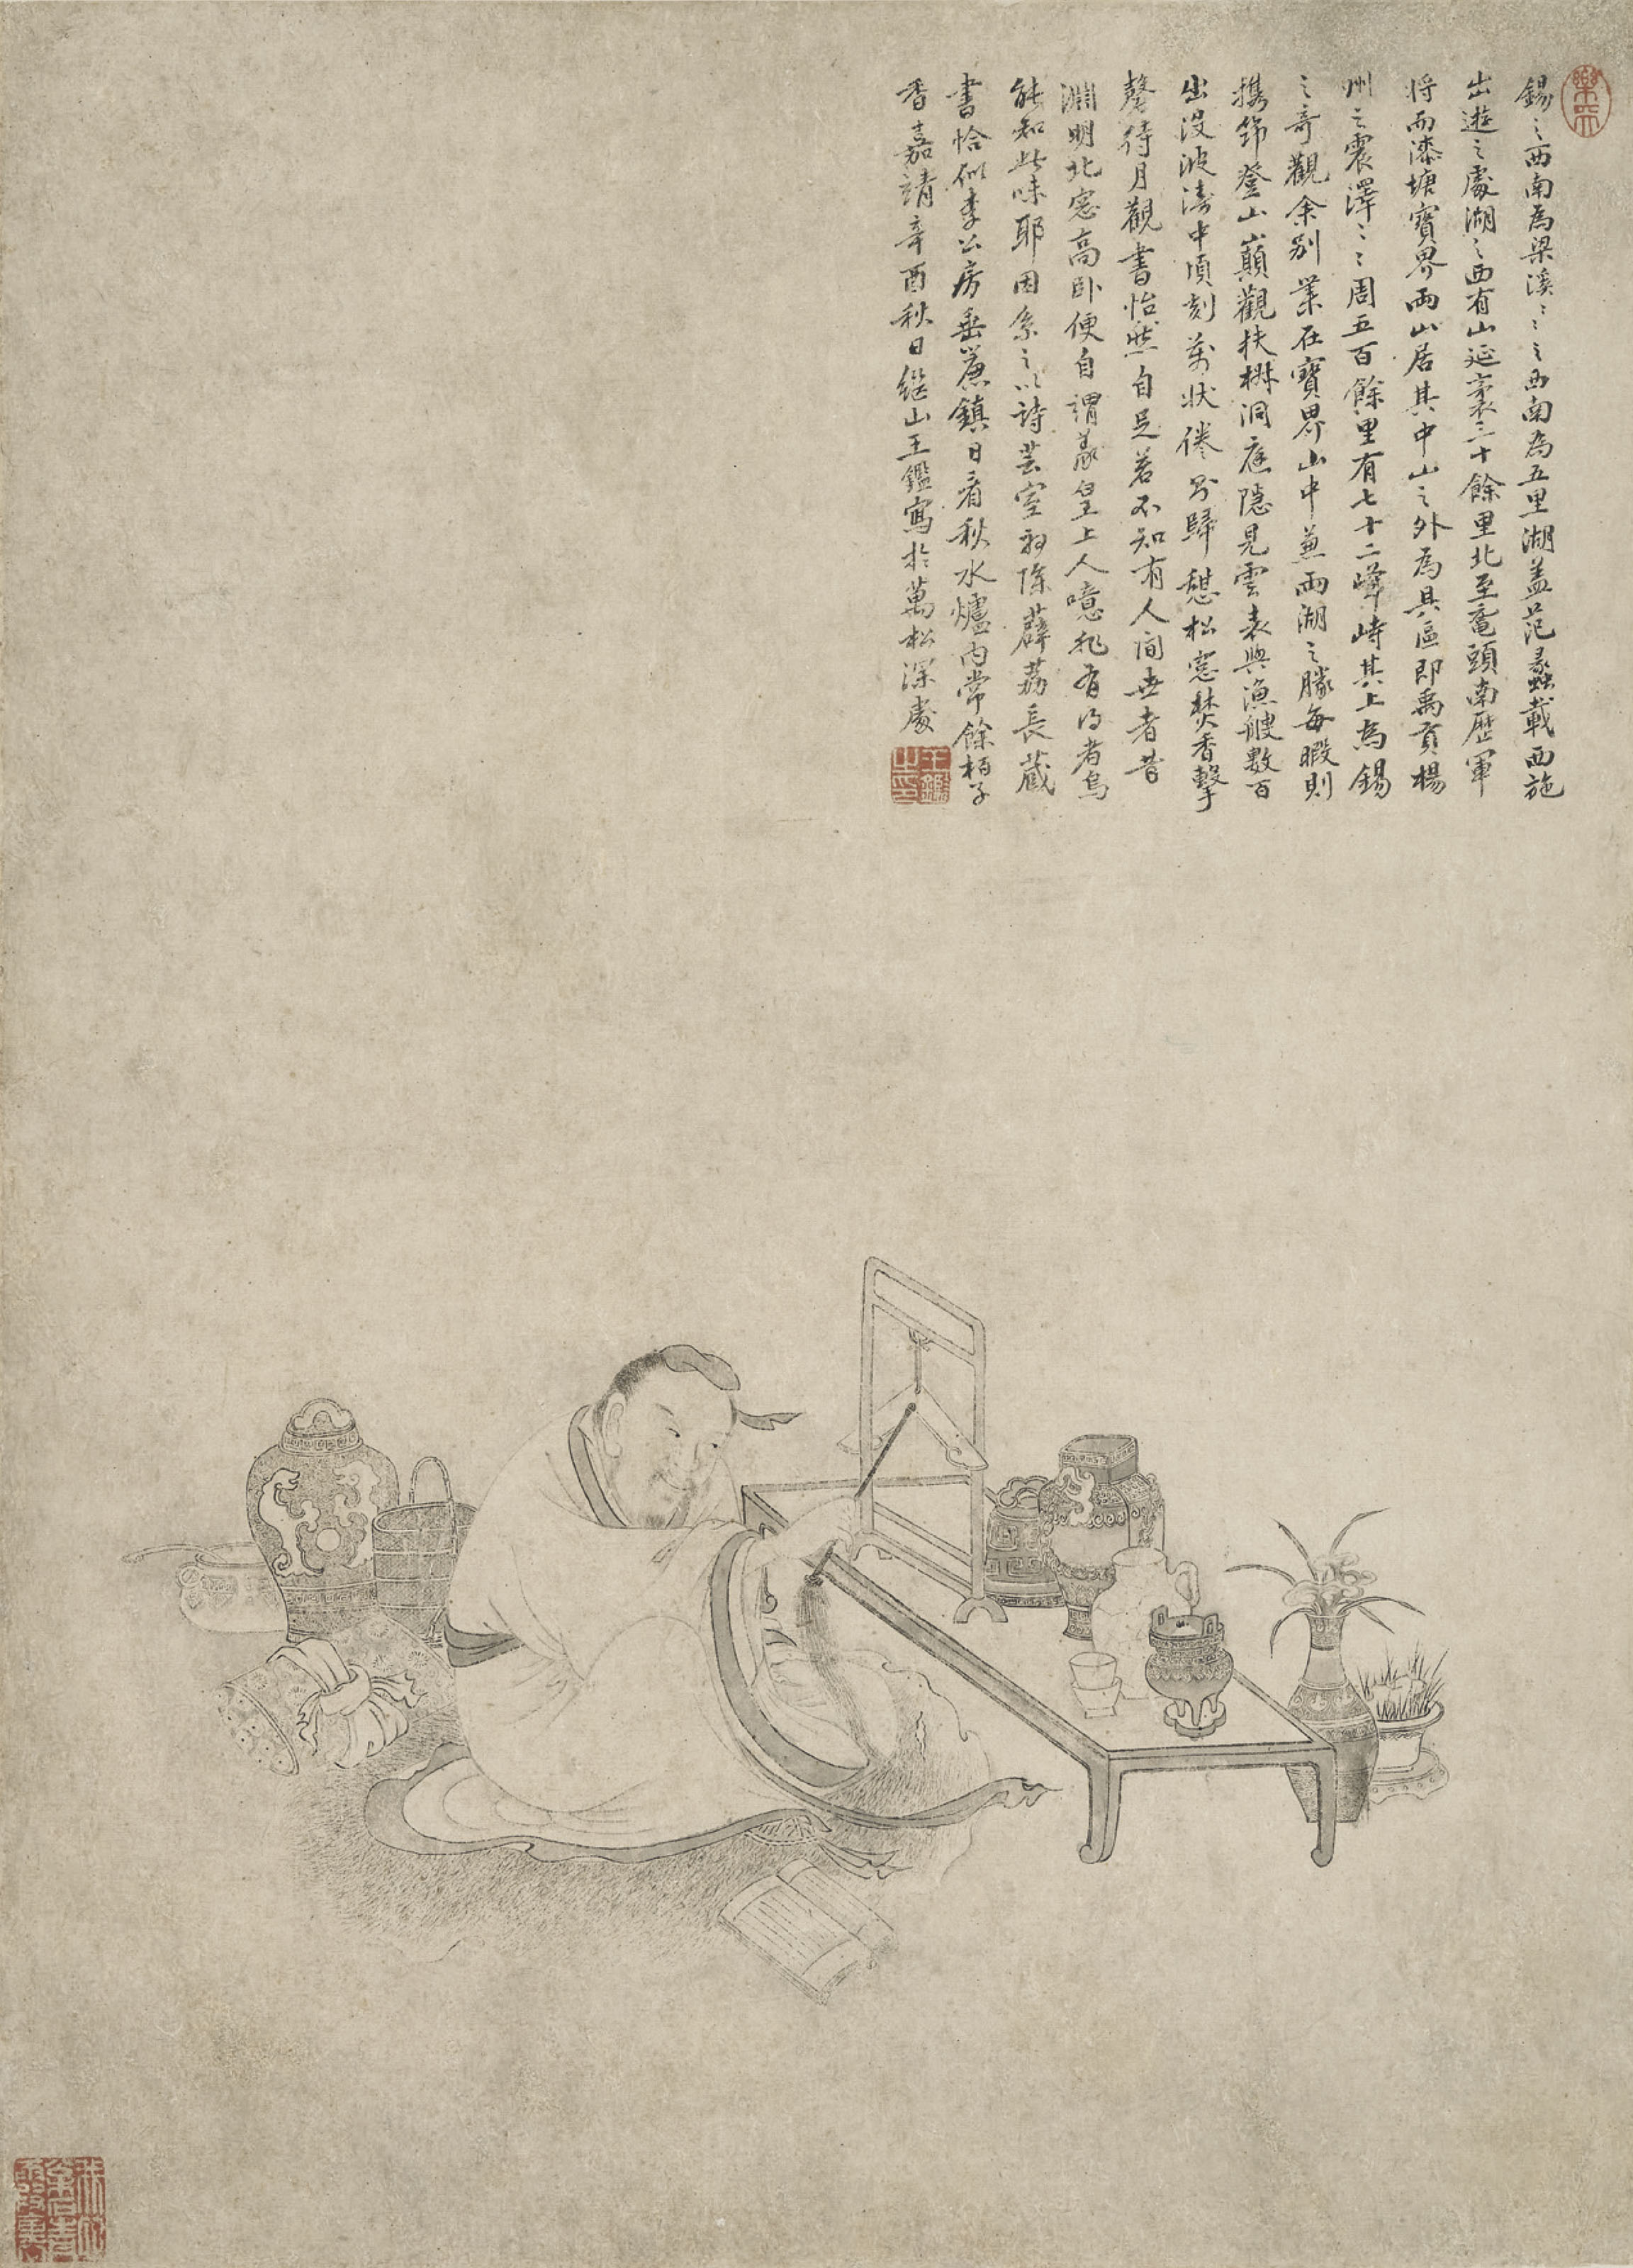 錫〻西南為梁溪〻〻〻西南為五里湖蓋范蠡載西施
出遊之處湖之西有山延袤三十餘里北至黿頭南歷軍
將而漆塘寶界兩山居其中山之外為具區即禹貢楊
州之震澤〻〻周五百餘里有七十二峰峙其上為錫
之奇觀余別業在寶界山中兼兩湖之勝每暇則
携筇登山巔觀扶桑洞庭隱見雲表與漁艘數百
出没波濤中頃刻萬狀倦即歸憩松窓焚香擊
磬待月觀書怡然自足若不知有人間世者昔
淵明北窓高臥便自謂羲皇上人噫非有得者烏
能知此味耶因系之以詩芸室初除薜荔長蔵
書恰似李公房垂簾鎮日看秋水爐內常餘栢子
香嘉靖辛酉秋日繼山王鑑寫於萬松深處
王鑑之印